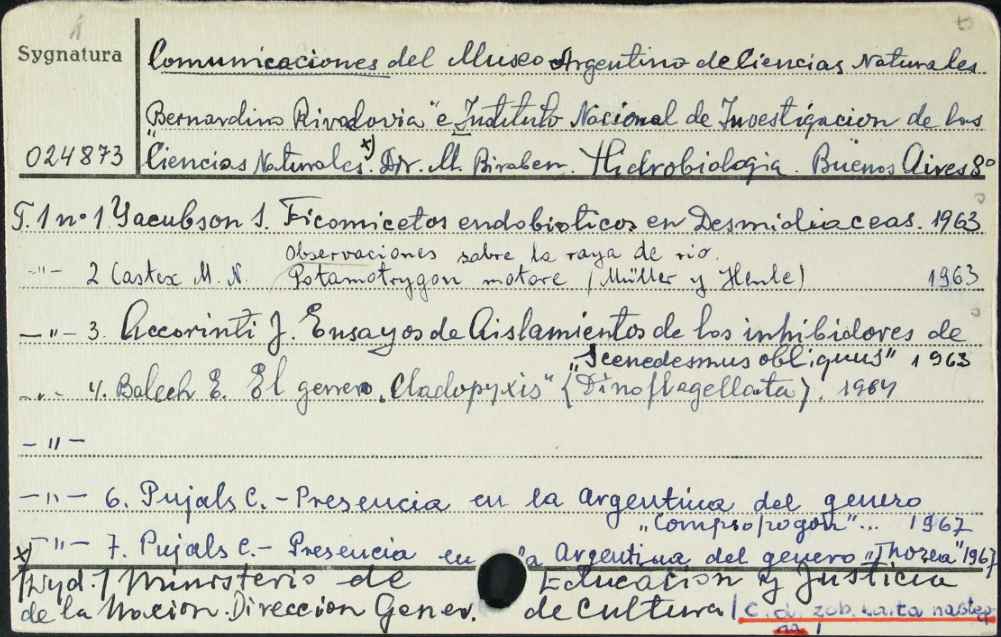 Sygnatura
024873
Comunicaciones del Museo Argentino de Ciencias Naturales
"Bernardino Rivadovia" e Instituto Nacional de Investigacion de las
Ciencias Naturales. x) Dir. M. Biraben. Hidrobiologia. Buenos Aires 8°
T. 1 no 1 Yacubson S. Ficomicetos endobioticos en Desmidiaceas. 1963
-"- 2 Castex M. N. Observaciones sobre la raya de rio.
Potamotrygon motore (Müller y Henle) 1963
-"- 3. Accorinti J. Ensayos de Aislamientos de los inhibidores de
"Scenedesmus obliquus" 1963
-"- 4. Balech E. El genero "Cladopyxis" (Dinoflagellata). 1964
-"-
-"- 6. Pujals C. - Presencia en la Argentina del genero
"Compsopogon"... 1967
-"- 7. Pujals C. - Presencia en la Argentina del genero "Thorea" 1967
x) Wyd. / Ministerio de Educacion y Justicia
de la Nacion. Direccion Gener. de Cultura / c. d. zob. karta następ
na /